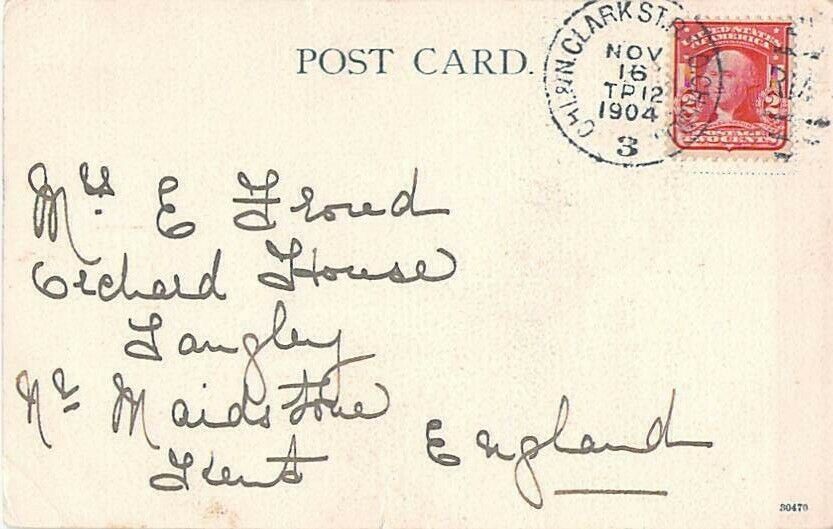 POST CARD.
CHI. & N. CLARK ST. R.P.O.
NOV
16
TR 12
1904
3
UNITED STATES
OF AMERICA
2 2
POSTAGE
TWO CENTS
Mr. E Froud
Orchard House
Langley
Nr Maidstone
Kent England
30470